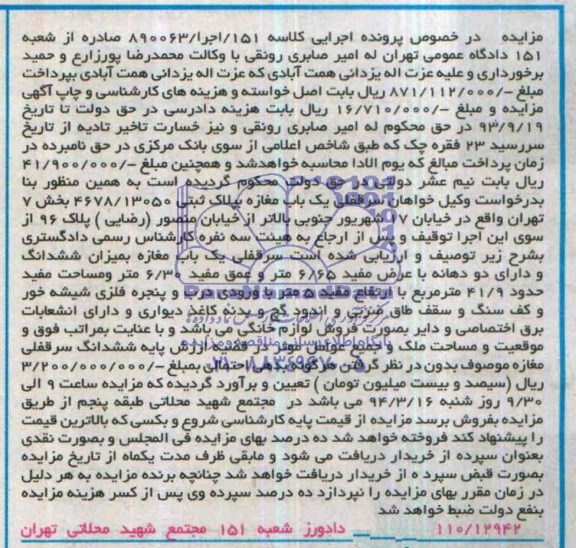 مزایده در خصوص پرونده اجرایی کلاسه ۱۵۱/اجرا/۸۹۰۰۶۳ صادره از شعبه
۱۵۱ دادگاه عمومی تهران له امیر صابری رونقی با وکالت محمدرضا پورزارع و حمید
برخورداری و علیه عزت اله یزدانی همت آبادی که عزت اله یزدانی همت آبادی بپرداخت
مبلغ -/۸۷۱/۱۱۲/۰۰۰ ریال بابت اصل خواسته و هزینه های کارشناسی و چاپ آگهی
مزایده و مبلغ -/۱۶/۷۱۰/۰۰۰ ریال بابت هزینه دادرسی در حق دولت تا تاریخ
۹۳/۹/۱۹ در حق محکوم له امیر صابری رونقی و نیز خسارت تاخیر تادیه از تاریخ
سررسید ۲۳ فقره چک که طبق شاخص اعلامی از سوی بانک مرکزی در حق نامبرده در
زمان پرداخت مبالغ که یوم الادا محاسبه خواهدشد و همچنین مبلغ -/۴۱/۹۰۰/۰۰۰
ریال بابت نیم عشر دولتی در حق دولت محکوم گردیده است به همین منظور بنا
بدرخواست وکیل خواهان سرقفلی یک باب مغازه پلاک ثبتی ۴۶۷۸/۱۳۰۵۰ بخش ۷
تهران واقع در خیابان ۱۷ شهریور جنوبی بالاتر از خیابان منصور (رضایی) پلاک ۹۶ از
سوی این اجرا توقیف و پس از ارجاع به هیئت سه نفره کارشناس رسمی دادگستری
بشرح زیر توصیف و ارزیابی شده است سرقفلی یک باب مغازه بمیزان ششدانگ
و دارای دو دهانه با عرض مفید ۶/۶۵ متر و عمق مفید ۶/۳۰ متر ومساحت مفید
حدود ۴۱/۹ مترمربع با ارتفاع مفید ۵ متر با ورودی درب و پنجره فلزی شیشه خور
و کف سنگ و سقف طاق ضربی و اندود گچ و بدنه کاغذ دیواری و دارای انشعابات
برق اختصاصی و دایر بصورت فروش لوازم خانگی می باشد و با عنایت بمراتب فوق و
موقعیت و مساحت ملک و جمیع عوامل موثر در قضیه ارزش پایه ششدانگ سرقفلی
مغازه موصوف بدون در نظر گرفتن هرگونه بدهی احتمالی بمبلغ -/۳/۲۰۰/۰۰۰/۰۰۰
ریال (سیصد و بیست میلیون تومان) تعیین و برآورد گردیده که مزایده ساعت ۹ الی
۹/۳۰ روز شنبه ۹۴/۳/۱۶ می باشد در مجتمع شهید محلاتی طبقه پنجم از طریق
مزایده بفروش برسد مزایده از قیمت پایه کارشناسی شروع و بکسی که بالاترین قیمت
را پیشنهاد کند فروخته خواهد شد ده درصد بهای مزایده فی المجلس و بصورت نقدی
بعنوان سپرده از خریدار دریافت می شود و مابقی ظرف مدت یکماه از تاریخ مزایده
بصورت قبض سپرد ه از خریدار دریافت خواهد شد چنانچه برنده مزایده به هر دلیل
در زمان مقرر بهای مزایده را نپردازد ده درصد سپرده وی پس از کسر هزینه مزایده
بنفع دولت ضبط خواهد شد
۱۱۰/۱۲۹۴۲ دادورز شعبه ۱۵۱ مجتمع شهید محلاتی تهران